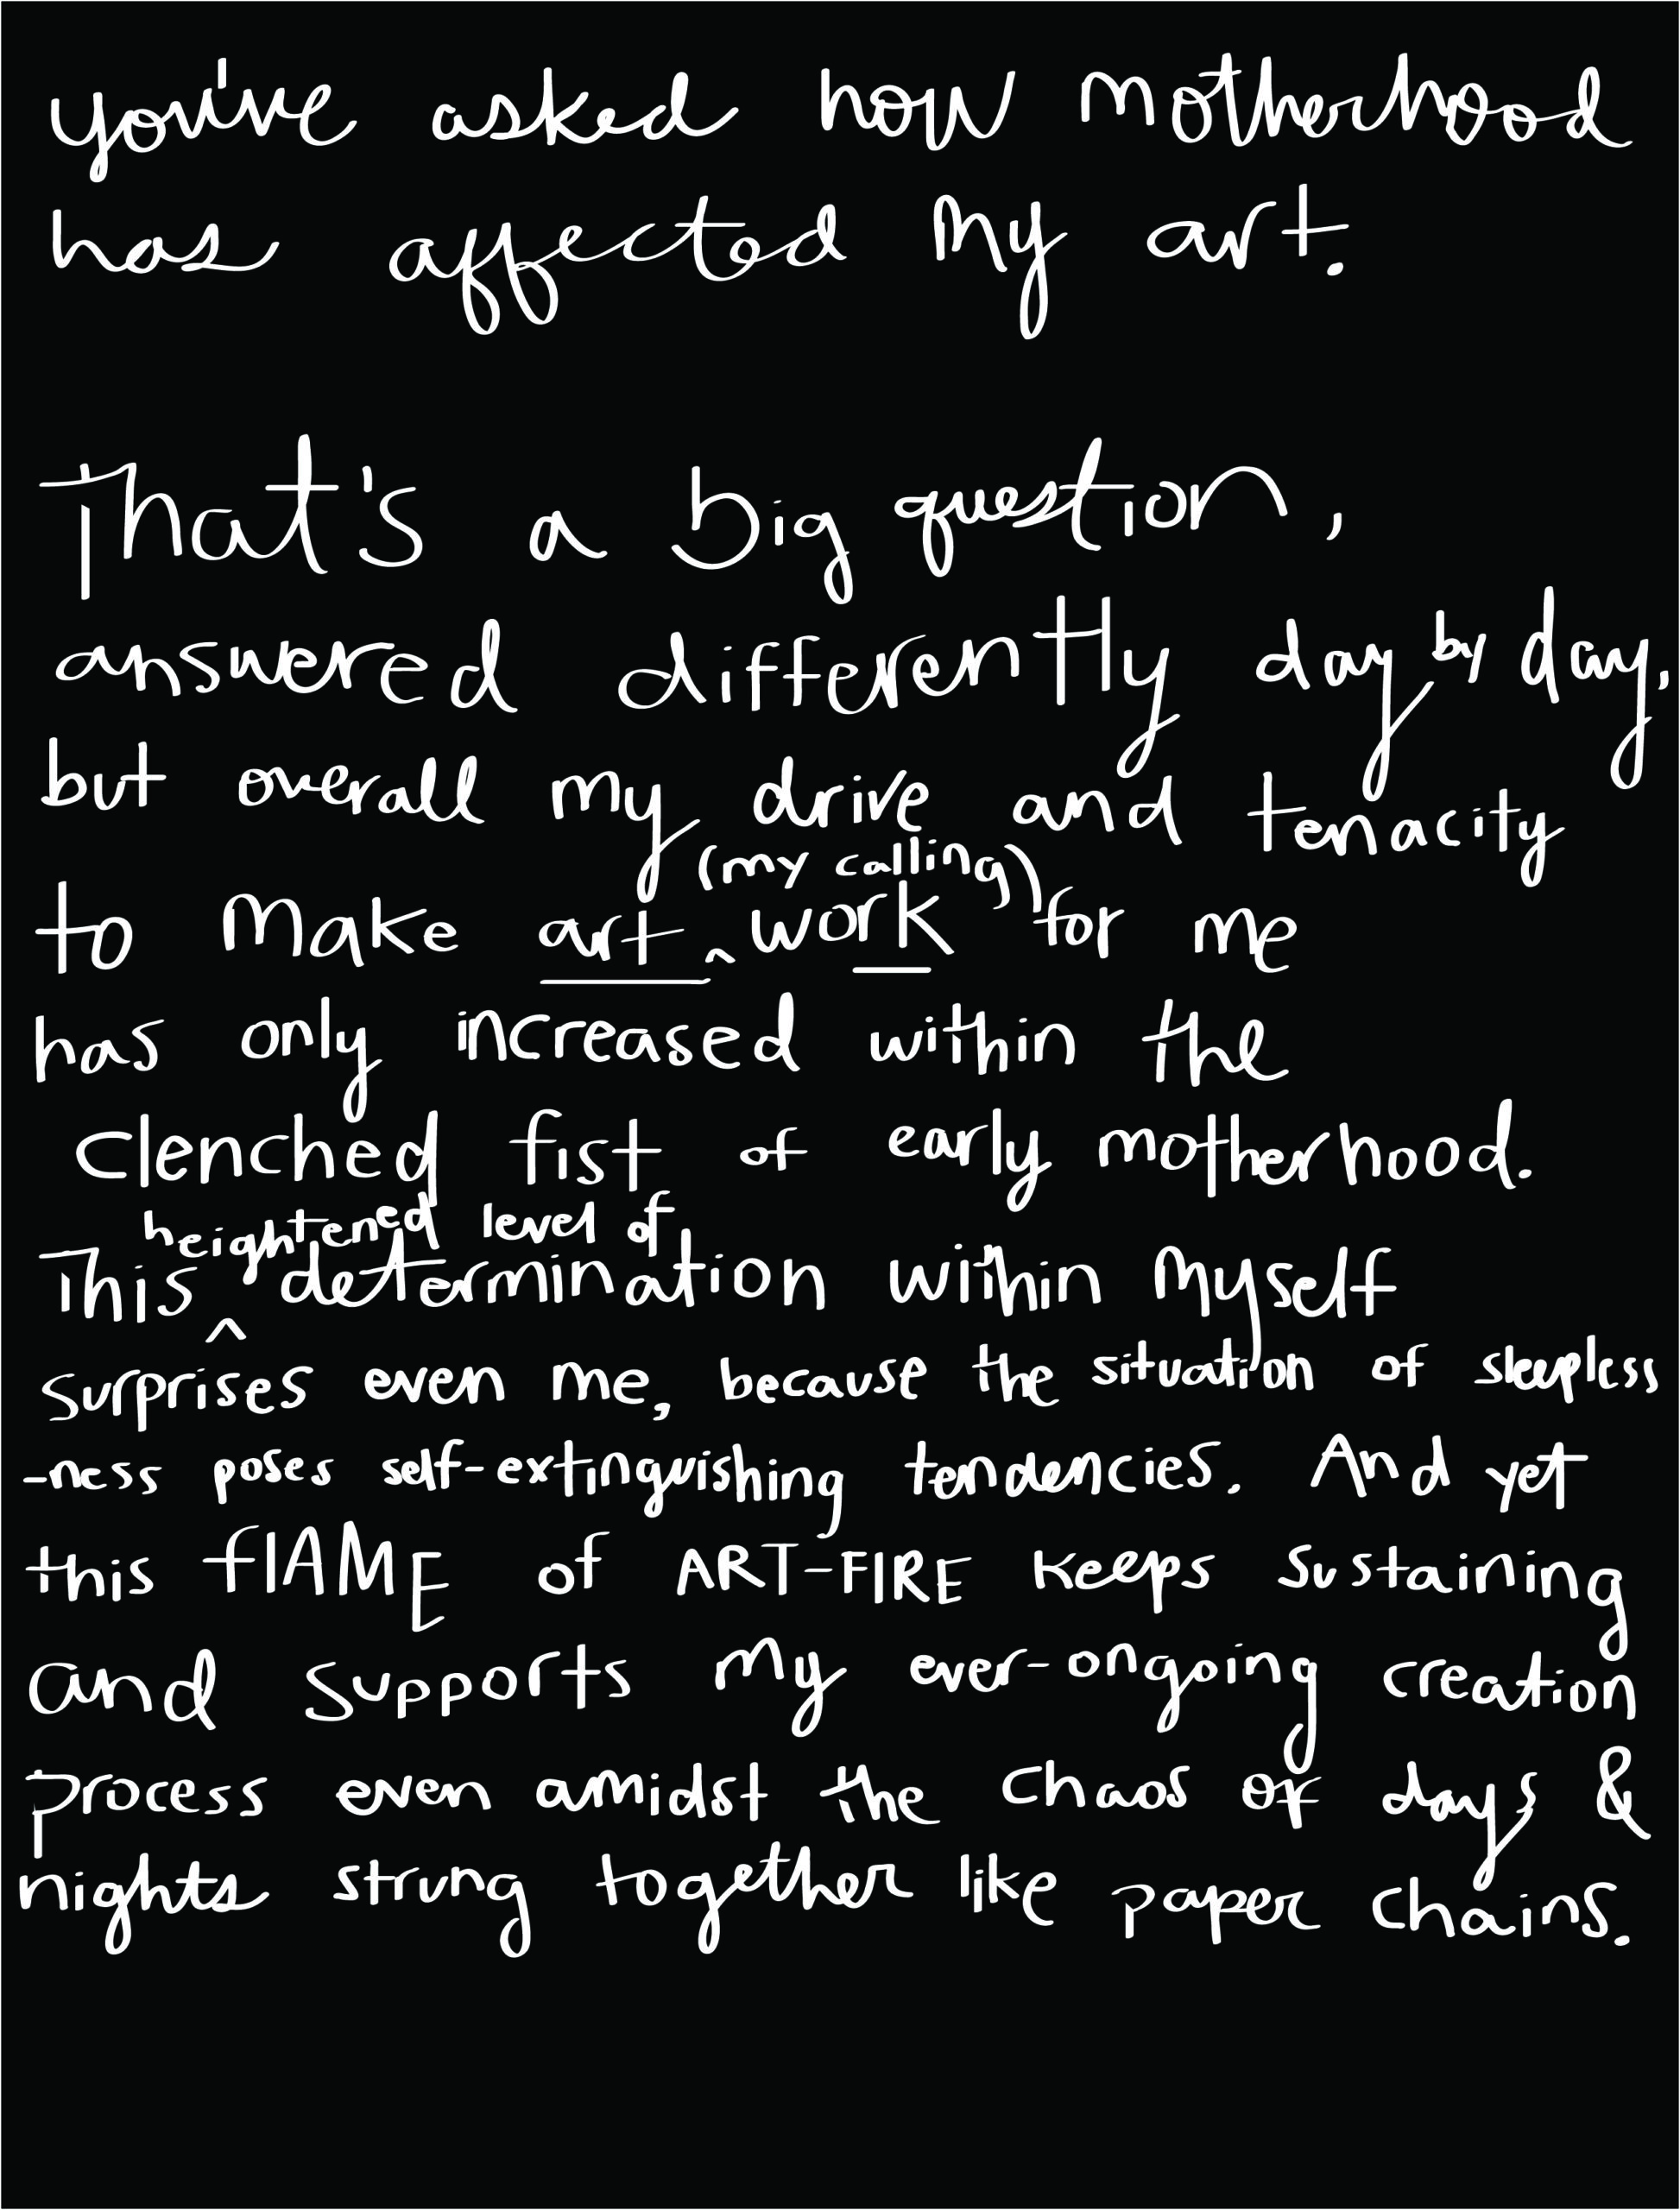 you've asked how motherhood
has affected my art.
That's a big question,
answered differently day by day,
but overall my drive and tenacity
(my calling)
to make art ^ work for me
has only increased within the
clenched fist of early motherhood.
heightened level of
This ^ determination within myself
surprises even me, because the situation of sleepless
-ness poses self-extinguishing tendencies. And yet
this flAME of ART-FIRE keeps sustaining
and supports my ever-ongoing creation
process even amidst the chaos of days &
nights strung together like paper chains.